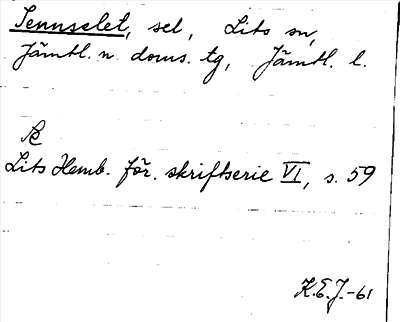 Tennselet, sel, Lits sn,
Jämtl. n. doms. tg, Jämtl. l.
Lits Hemb. för. skriftserie VI, s. 59
K.E.J.-61